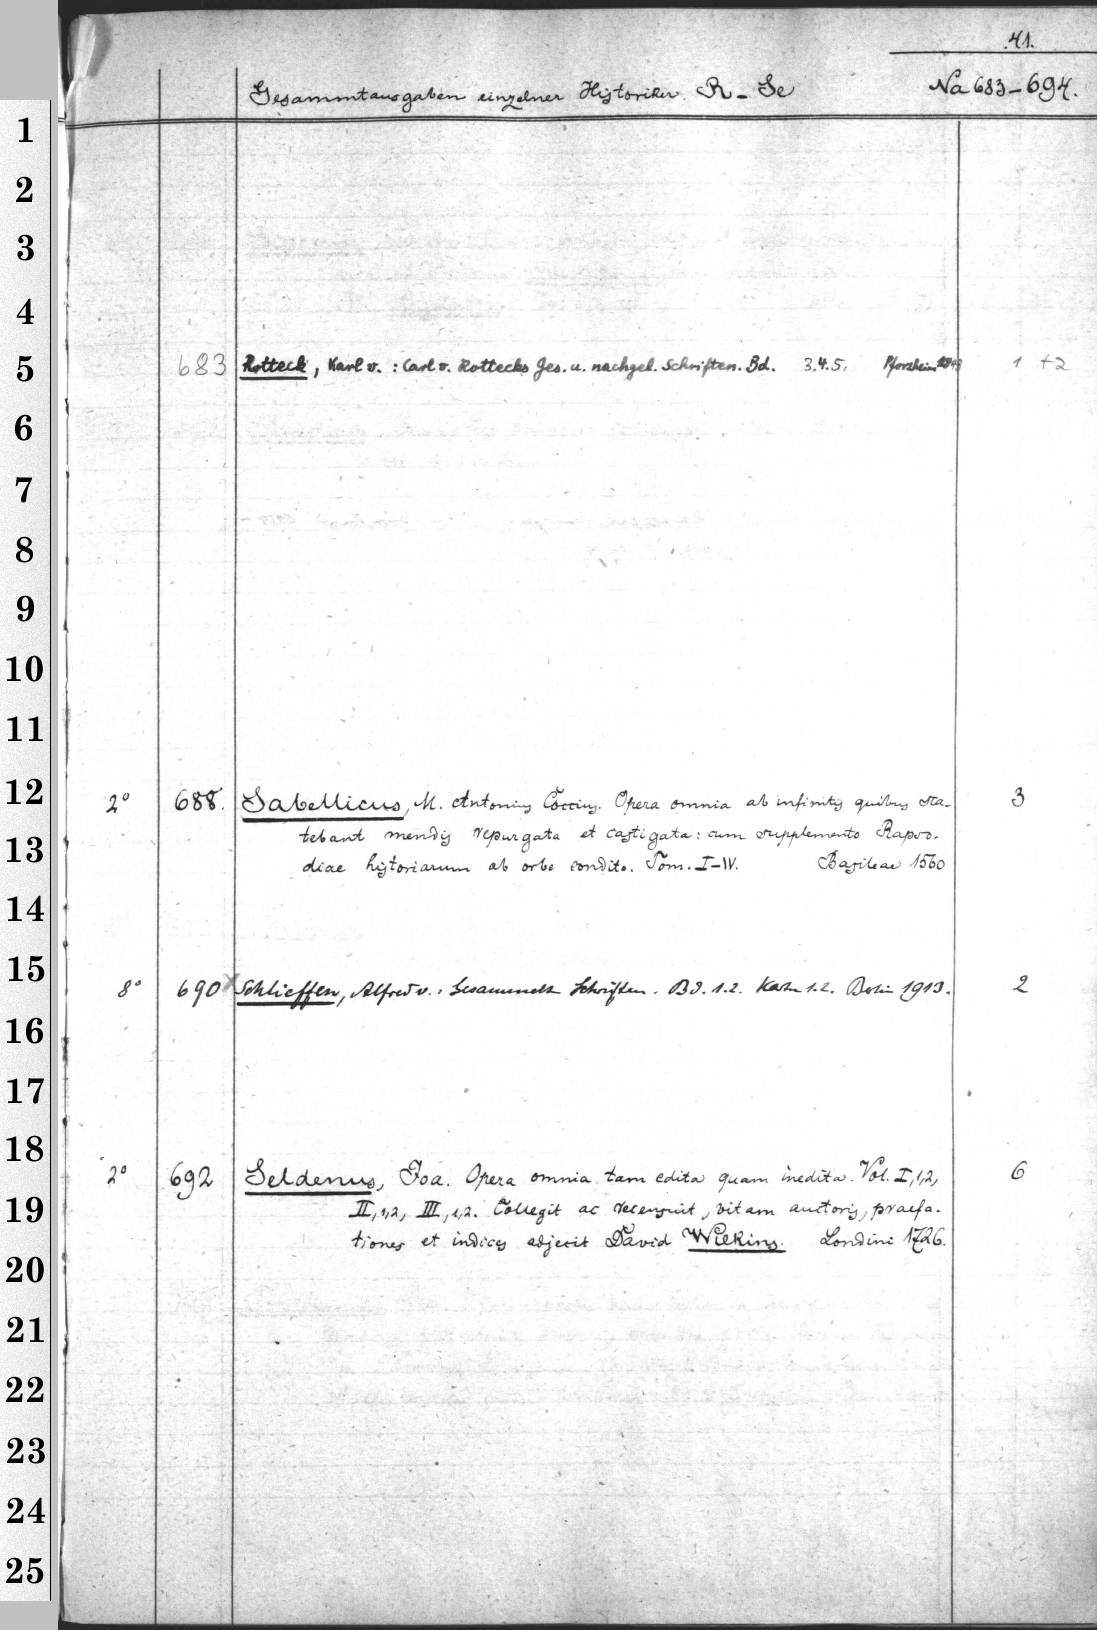 41.
Gesammtausgaben einzelner Historiker R - Se Na 683-694.
1
2
3
4
5 683 Rotteck, Karl v. : Carl v. Rottecks Ges. u. nachgel. Schriften. Bd. 3.4.5. Pforzheim 1843 1 +2
6
7
8
9
10
11
12 2° 688. Sabellicus, M. Antonius Coccius. Opera omnia ab infinitis quibus sca- 3
tebant mendis repurgata et castigata: cum supplemento Rapso-
13 diae historiarum ab orbe condito. Tom. I-IV. Basileae 1560
14
15 8° 690 x Schlieffen, Alfred v. : Gesammelte Schriften. Bd. 1.2. Karte 1.2. Berlin 1913. 2
16
17
18 2° 692 Seldenus, Joa. Opera omnia tam edita quam inedita. Vol. I,1,2, 6
19 II,1,2, III,1,2. Collegit ac recensuit, vitam auctoris, praefa-
tiones et indices adjecit David Wilkins. Londini 1726.
20
21
22
23
24
25